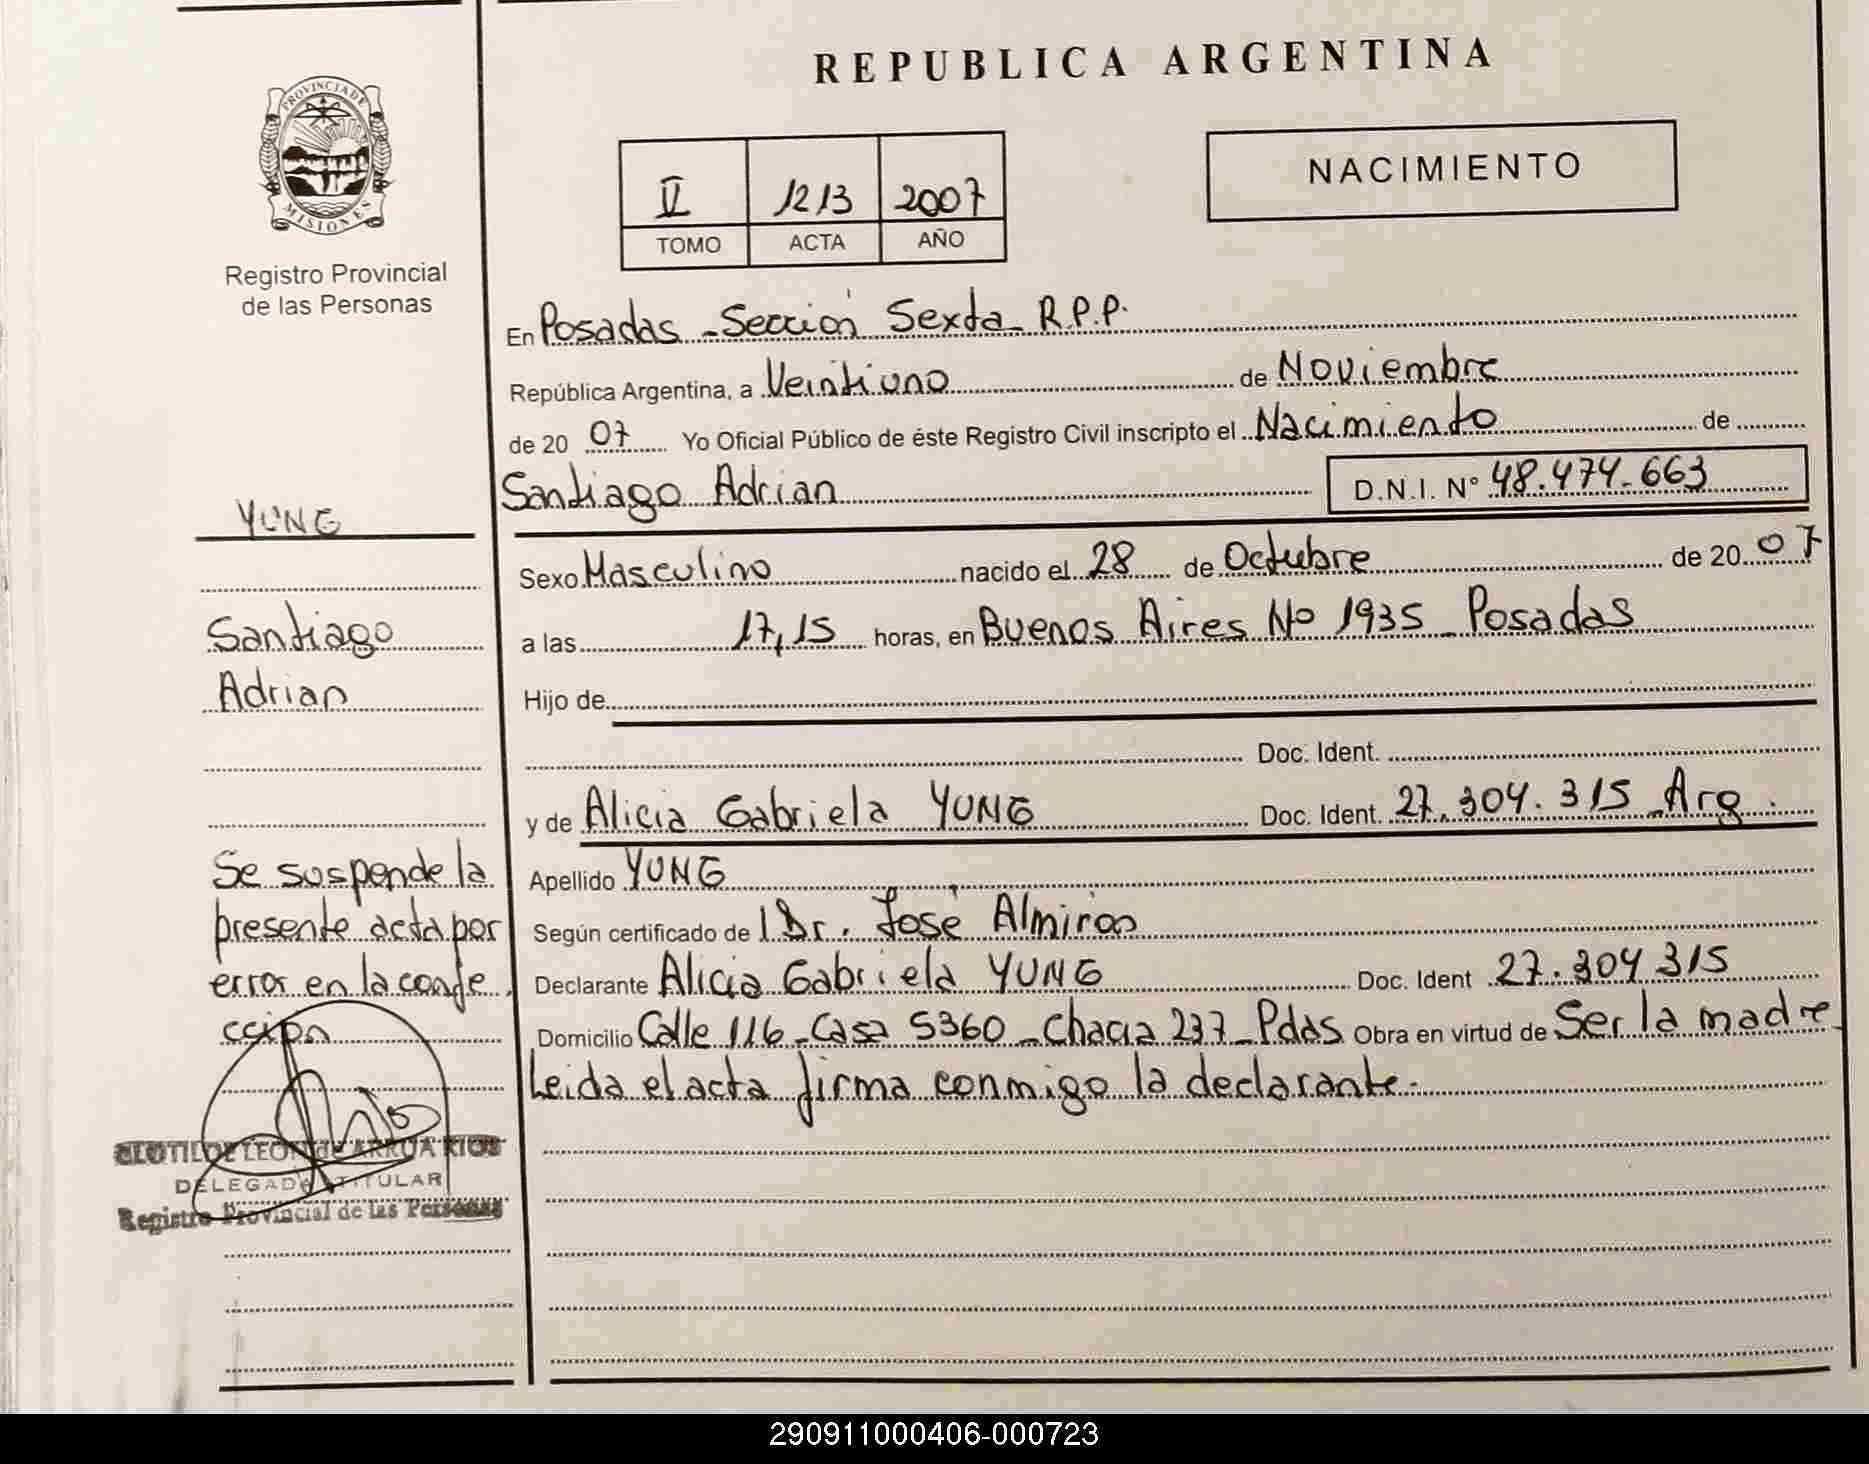 REPUBLICA ARGENTINA
PROVINCIA DE MISIONES
Registro Provincial
de las Personas
1213 2007
TOMO ACTA AÑO
NACIMIENTO
En Posadas - Sección Sexta R.P.P.
República Argentina, a Veintiuno de Noviembre
de 20 07 Yo Oficial Público de éste Registro Civil inscripto el Nacimiento de
Santiago Adrian D.N.I. N° 48.474.663
YUNG
Sexo Masculino nacido el 28 de Octubre de 20 07
Santiago
Adrian
a las 17,15 horas, en Buenos Aires No 1935 - Posadas
Hijo de
Doc. Ident.
y de Alicia Gabriela YUNG Doc. Ident. 27.304.315 Arg.
Apellido YUNG
Según certificado de Dr. José Almirón
Declarante Alicia Gabriela YUNG Doc. Ident 27.304.315
Domicilio Calle 116 - Casa 5360 - Chacra 237 - Pdas Obra en virtud de Ser la madre
Leida el acta firma conmigo la declarante.
Se suspende la
presente acta por
error en la confe
cción
CLOTILDE LEON de ARRUA RIOS
DELEGADA TITULAR
Registro Provincial de las Personas
290911000406-000723